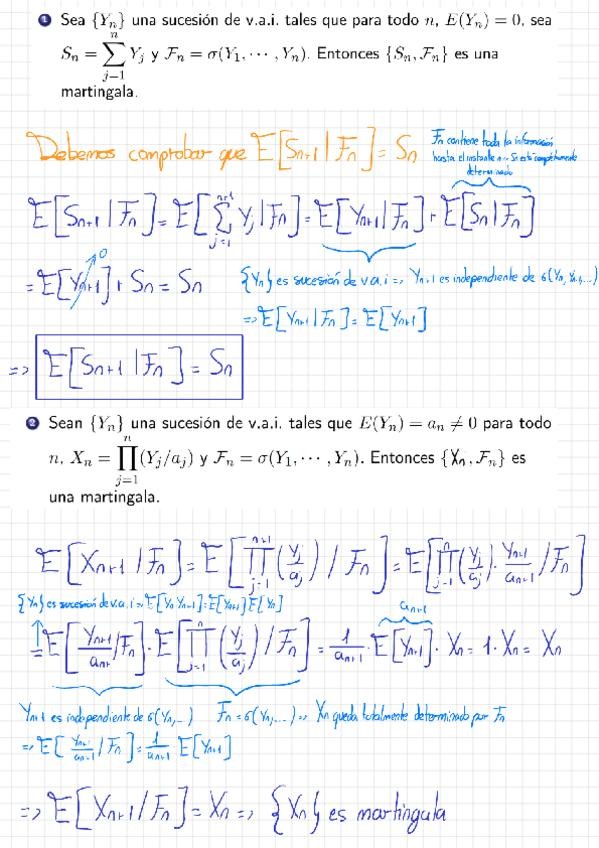 1 Sea {Yn} una sucesión de v.a.i. tales que para todo n, E(Yn) = 0, sea
Sn = ∑_{j=1}^{n} Yj y Fn = σ(Y1, ⋯ , Yn). Entonces {Sn, Fn} es una
martingala.
Debemos comprobar que E[Sn+1 | Fn] = Sn
Fn contiene toda la información
hasta el instante n → Sn está completamente
determinado
E[Sn+1 | Fn] = E[∑_{j=1}^{n+1} Yj | Fn] = E[Yn+1 | Fn] + E[Sn | Fn]
= E[Yn+1] + Sn = Sn
0
{Yn} es sucesión de v.a.i => Yn+1 es independiente de σ(Yn, Yn-1, ...)
=> E[Yn+1 | Fn] = E[Yn+1]
=> E[Sn+1 | Fn] = Sn
2 Sean {Yn} una sucesión de v.a.i. tales que E(Yn) = an ≠ 0 para todo
n, Xn = ∏_{j=1}^{n} (Yj/aj) y Fn = σ(Y1, ⋯ , Yn). Entonces {Xn, Fn} es
una martingala.
E[Xn+1 | Fn] = E[∏_{j=1}^{n+1} (Yj/aj) / Fn] = E[∏_{j=1}^{n} (Yj/aj) · Yn+1/an+1 / Fn]
{Yn} es sucesión de v.a.i => E[Yn Yn-1] = E[Yn+1] E[Yn]
an+1
= E[Yn+1/an+1 / Fn] · E[∏_{j=1}^{n} (Yj/aj) / Fn] = 1/an+1 · E[Yn+1] · Xn = 1 · Xn = Xn
Yn+1 es independiente de σ(Yn, ...)
Fn = σ(Yn, ...) => Xn queda totalmente determinado por Fn
=> E[Yn+1/an+1 / Fn] = 1/an+1 E[Yn+1]
=> E[Xn+1 / Fn] = Xn => {Xn} es martingala